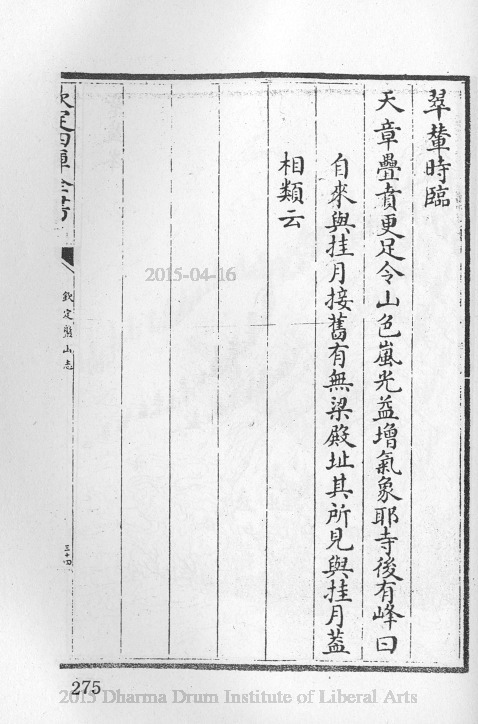 翠輦時臨
天章疊賁更足令山色嵐光益增氣象耶寺後有峰曰
自來與挂月接舊有無梁殿址其所見與挂月葢
相類云
欽定四庫全書
欽定盤山志
三十四
2015-04-16
275
2015 Dharma Drum Institute of Liberal Arts